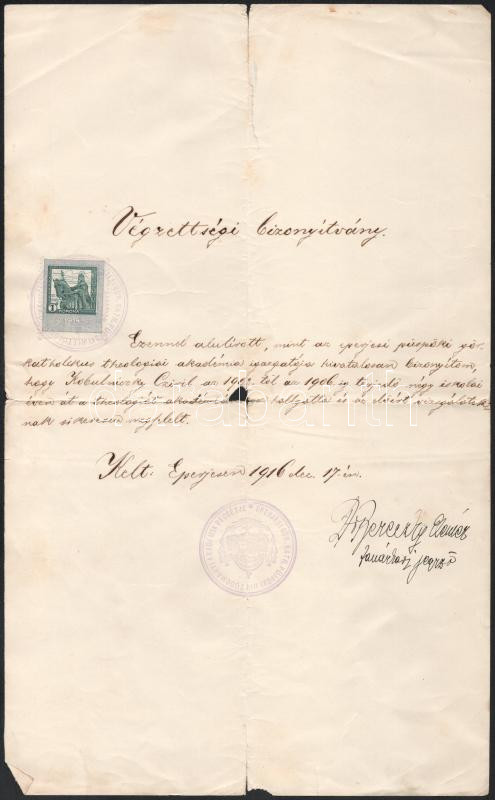 Végzettségi bizonyítvány.
1 KORONA
1914
Ezennel alulirott, mint az eperjesi püspöki gör.
katholikus theologiai akadémia igazgatója hivatalosan bizonyítom,
hogy Kobulniczky Cziril az 1902-től az 1906 ig terjedő négy iskolai
éven át a theologiai akadémiát hallgatta és az előírt vizsgálatok-
nak sikeresen megfelelt.
Kelt: Eperjesen 1916 dec. 17-én.
tanárkari jegyző
darabanth